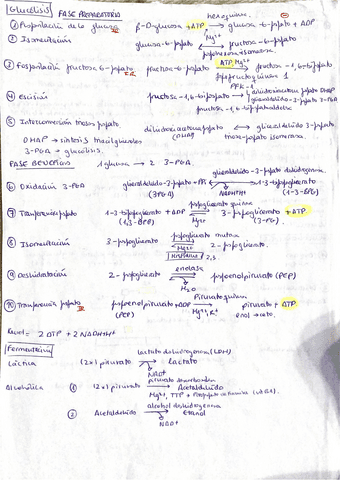 Glucólisis FASE PREPARATORIA
hexoquinasa
① Fosforilación de la glucosa β-D-glucosa + ATP → glucosa-6-fosfato + ADP
Mg²⁺
② Isomerización glucosa-6-fosfato ⇌ fructosa-6-fosfato
fosfohexosa isomerasa
③ Fosforilación fructosa-6-fosfato fructosa-6-fosfato ATP Mg²⁺ → fructosa-1,6-bifosfato
IR
fosfofructoquinasa 1
PFK-1
④ Escisión fructosa-1,6-bifosfato dihidroxiacetona fosfato DHAP
gliceraldehído-3-fosfato 3-PGA
fructosa-1,6-bifosfato aldolasa
⑤ Interconversión triosas fosfato dihidroxiacetona fosfato ⇌ gliceraldehído 3-fosfato
(DHAP) triosa-fosfato isomerasa
DHAP → síntesis triacilgliceroles
3-PGA → glucólisis
FASE BENEFICIOS 1 glucosa → 2 3-PGA
gliceraldehído-3-fosfato deshidrogenasa
⑥ Oxidación 3-PGA gliceraldehído-3-fosfato + Pi ⇌ 1-3-bifosfoglicerato
(3PGA) NADH+H⁺ (1-3-BPG)
fosfoglicerato quinasa
⑦ Transferencia fosfato 1-3-bifosfoglicerato + ADP ⇌ 3-fosfoglicerato + ATP
(1,3-BPG) Mg²⁺ (3-PG)
fosfoglicerato mutasa
⑧ Isomerización 3-fosfoglicerato ⇌ 2-fosfoglicerato
Mg²⁺
2,3
enolasa
⑨ Deshidratación 2-fosfoglicerato ⇌ fosfoenolpiruvato (PEP)
H₂O
Piruvato quinasa
⑩ Transferencia fosfato fosfoenolpiruvato + ADP → piruvato + ATP
IR (PEP) Mg²⁺, K⁺ enol → ceto
2 ATP + 2 NADH+H⁺
Fermentación
lactato deshidrogenasa (LDH)
Láctica (2x) piruvato → Lactato
NAD⁺
piruvato descarboxilasa
Alcohólica ① (2x) piruvato → Acetaldehído
Mg²⁺, TTP
alcohol deshidrogenasa
② Acetaldehído → Etanol
NAD⁺